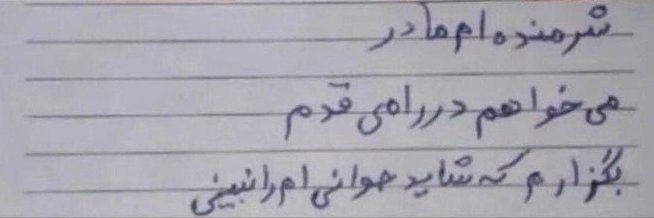 شرمنده ام مادر
می خواهم در راهی قدم
بگزارم که شاید جوانی ام را نبینی